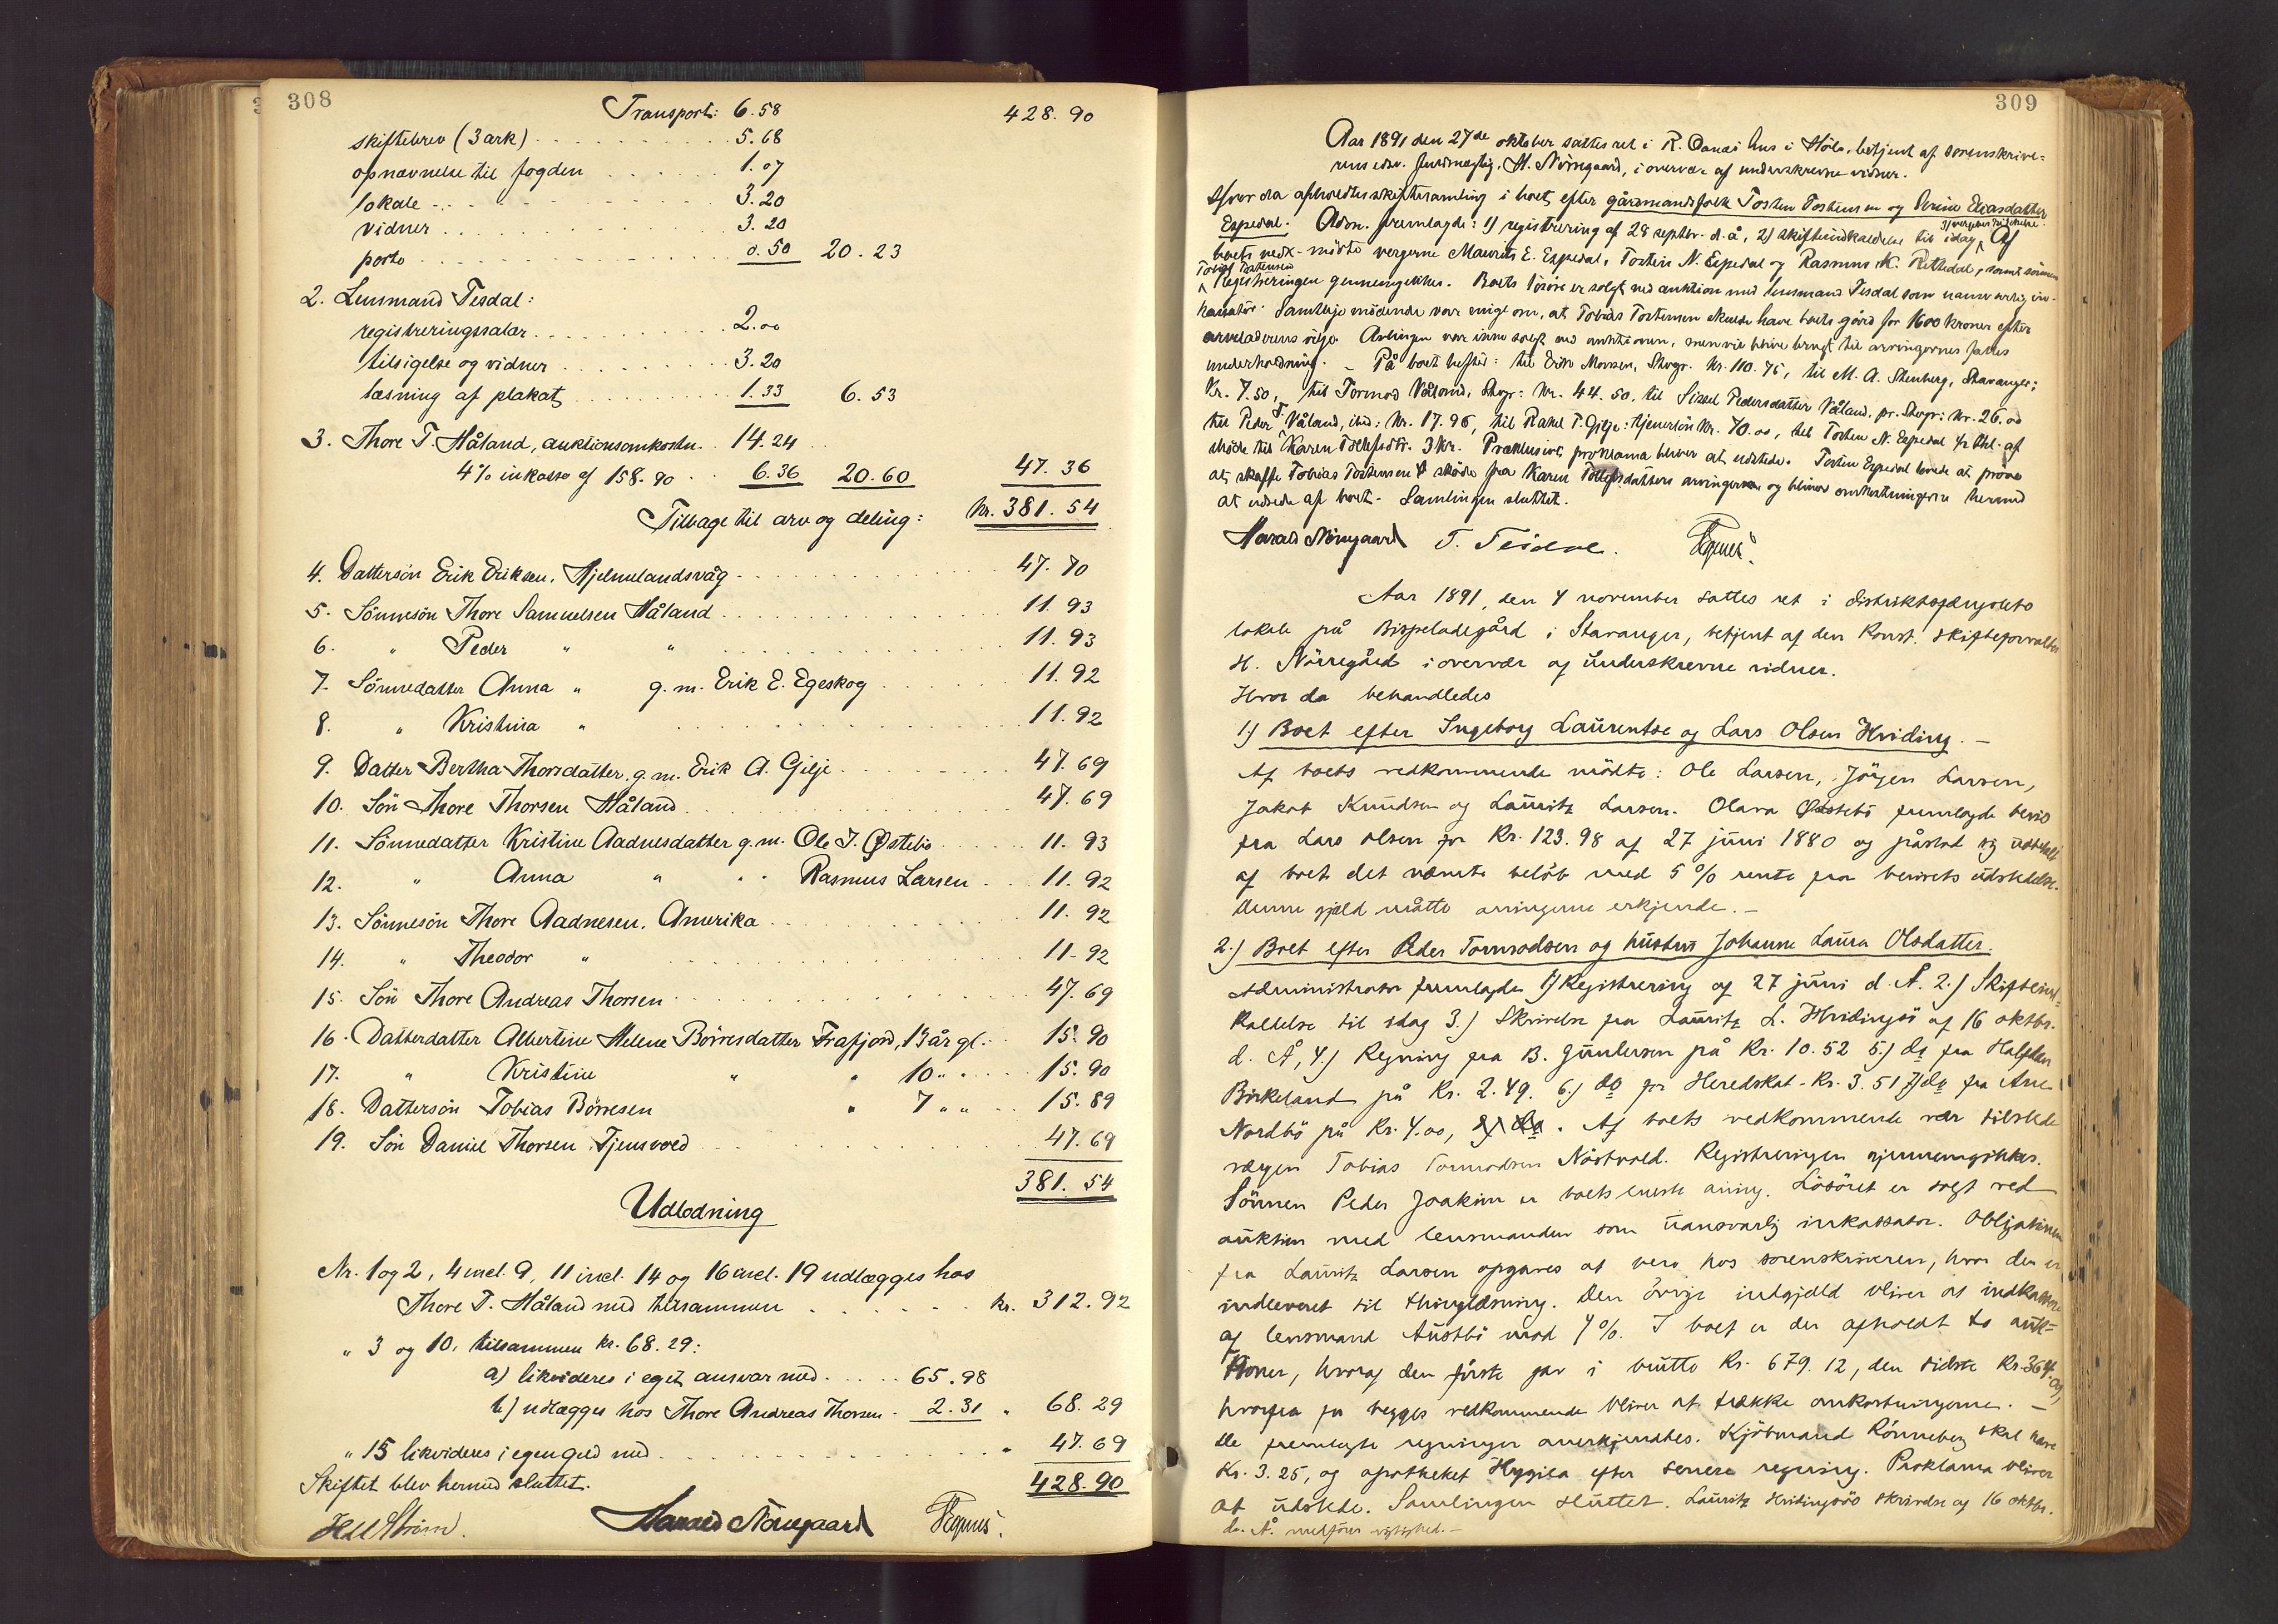 308
Transport: 6.58 428.90
skiftebrev (3 ark) 5.68
opnævnelse til fogden 1.07
lokale 3.20
vidner 3.20
porto 0.50 20.23
2. Lensmand Tesdal:
registreringssalær 2.00
tilsigelse og vidner 3.20
læsning af plakat 1.33 6.53
3. Thore T. Håland, auktionsomkostn. 14.24
4% inkasso af 158.90 6.36 20.60 47.36
Tilbage til arv og deling: Kr. 381.54
4. Dattersön Erik Eriksen, Hjelmelandsvåg 47.70
5. Sönnesön Thore Samuelsen Håland 11.93
6. " Peder " " 11.93
7. Sönnedatter Anna " g.m. Erik E. Egeskog 11.92
8. " Kristina " 11.92
9. Datter Bertha Thorsdatter g.m. Erik A. Gilje 47.69
10. Sön Thore Thorsen Håland 47.69
11. Sönnedatter Kristine Aadnesdatter g.m. Ole J. Østebö 11.93
12. " Anna " " " Rasmus Larsen 11.92
13. Sönnesön Thore Aadnesen, Amerika 11.92
14. " Theodor " 11.92
15. Sön Thore Andreas Thorsen 47.69
16. Datterdatter Albertine Helene Börresdatter Frafjord, 13 år gl. 15.90
17. " Kristine " " 10 " " 15.90
18. Dattersön Tobias Börresen " 7 " " 15.89
19. Sön Daniel Thorsen Tjensvold 47.69
381.54
Udlodning
Nr. 1 og 2, 4 incl. 9, 11 incl. 14 og 16 incl. 19 udlægges hos
Thore T. Håland med tilsammen kr. 312.92
" 3 og 10, tilsammen kr. 68.29:
a) likvideres i eget ansvar med 65.98
b) udlægges hos Thore Andreas Thorsen 2.31 " 68.29
" 15 likvideres i egen gjeld med " 47.69
Skiftet blev hermed sluttet. 428.90
Harald Nörregaard
309
Aar 1891 den 27de oktober sattes ret i R. hus i Höle, betjent af sorenskrive=
rens edsv. fuldmægtig, H. Nörregaard, i overvær af underskrevne vidner.
Hvor da afholdtes skiftesamling i boet efter gårdmandsfolk Tosten Tostensen og Serine Eliasdatter
Espedal. Adm. fremlagde: 1) registrering af 28 septbr. d.å, 2) skifteindkaldelse til idag, Af
boets vedk. mödte vergerne Maurits E. Espedal, Tosten N. Espedal og Rasmus K. Rettedal, samt sönnen
Tobias Tostensen
Registreringen gennemgikkes. Boets lösöre er solgt ved auktion med lensmand Tesdal som uansvarlig in-
kassator. Samtlige mödende var enige om, at Tobias Tostensen skulde have boets gård for 1600 kroner efter
arveladerens vilje. Avlingen var ikke solgt ved auktionen, men vil blive brugt til arvingernes fælles
underholdning. – På boet heftes: til Erik Monsen, Stvgr. kr. 110.75, til M. A. Stenberg, Stavanger;
Kr. 7.50, til Tormod Våland, Stvgr: kr. 44.50, til Sissel Pedersdatter Våland, pr. Stvgr: kr. 26.00
til Peder T. Våland, ibid: kr. 17.96, til Rakel T. Gilje: tjenerlön kr. 70.00, til Tosten N. Espedal
sköde til Karen Tollefsdtr. 3 kr. Præklusivt proklama bliver at udstede. Tosten Espedal lovede at pröve
at skaffe Tobias Tostensen sköde fra Karen Tollefsdatters arvinger og bliver omkostningerne hermed
at udrede af boet. Samlingen sluttet.
Harald Nörregaard T. Tesdal.
Aar 1891, den 4 november sattes ret i distriktsfængslets
lokale på Bispeladegård i Stavanger, betjent af den konst. skifteforvalter
H. Nörregård i overvær af underskrevne vidner.
Hvor da behandledes
1) Boet efter Ingeborg Laurentse og Lars Olsen Hviding. –
Af boets vedkommende mödte: Ole Larsen, Jörgen Larsen,
Jakob Knudsen og Lauritz Larsen. Olava Østebö fremlagde bevis
fra Lars Olsen for Kr. 123.98 af 27 juni 1880 og påstod sig udbetalt
af boet det nævnte belöb med 5 % rente fra bevisets udstedelse.
Denne gjæld måtte arvingerne erkjende. –
2.) Boet efter Peder Tormodsen og hustru Johanne Laura Olsdatter.
Administrator fremlagde 1) Registrering af 27 juni d. Å. 2.) Skifteind=
kaldelse til idag 3.) Skrivelse fra Lauritz L. Hvidingsö af 16 oktbr.
d. Å, 4.) Regning fra B. Gundersen på Kr. 10.52 5.) do fra Halfdan
Birkeland på Kr. 2.49. 6.) do for Heredskat Kr. 3.51 7) do fra Arne
Nordbö på Kr. 4.00, . Af boets vedkommende var tilstede
værgen Tobias Tormodsen Nåstvold. Registreringen gjennemgikkes.
Sönnen Peder Joakim er boets eneste arving. Lösöret er solgt ved
auktion med lensmanden som uansvarlig inkassator. Obligationen
fra Lauritz Larsen opgaves at være hos sorenskriveren, hvor den er
indleveret til thinglæsning. Den övrige indgjæld bliver at indkassere
af lensmand Austbö mod 4%. I boet er der afholdt to auk=
tioner, hvoraf den förste gav i brutto Kr. 679.12, den sidste Kr. 364.
hvorfra for begges vedkommende bliver at trække omkostningerne. –
De fremlagte regninger anerkjendtes. Kjöbmand Rönneberg skal have
Kr. 3.25, og apotheket Hygiea efter senere regning. Proklama bliver
at udstede. Samlingen sluttet. Lauritz Hvidingsös skrivelse af 16 oktbr.
d. Å. medförer rigtighed. –